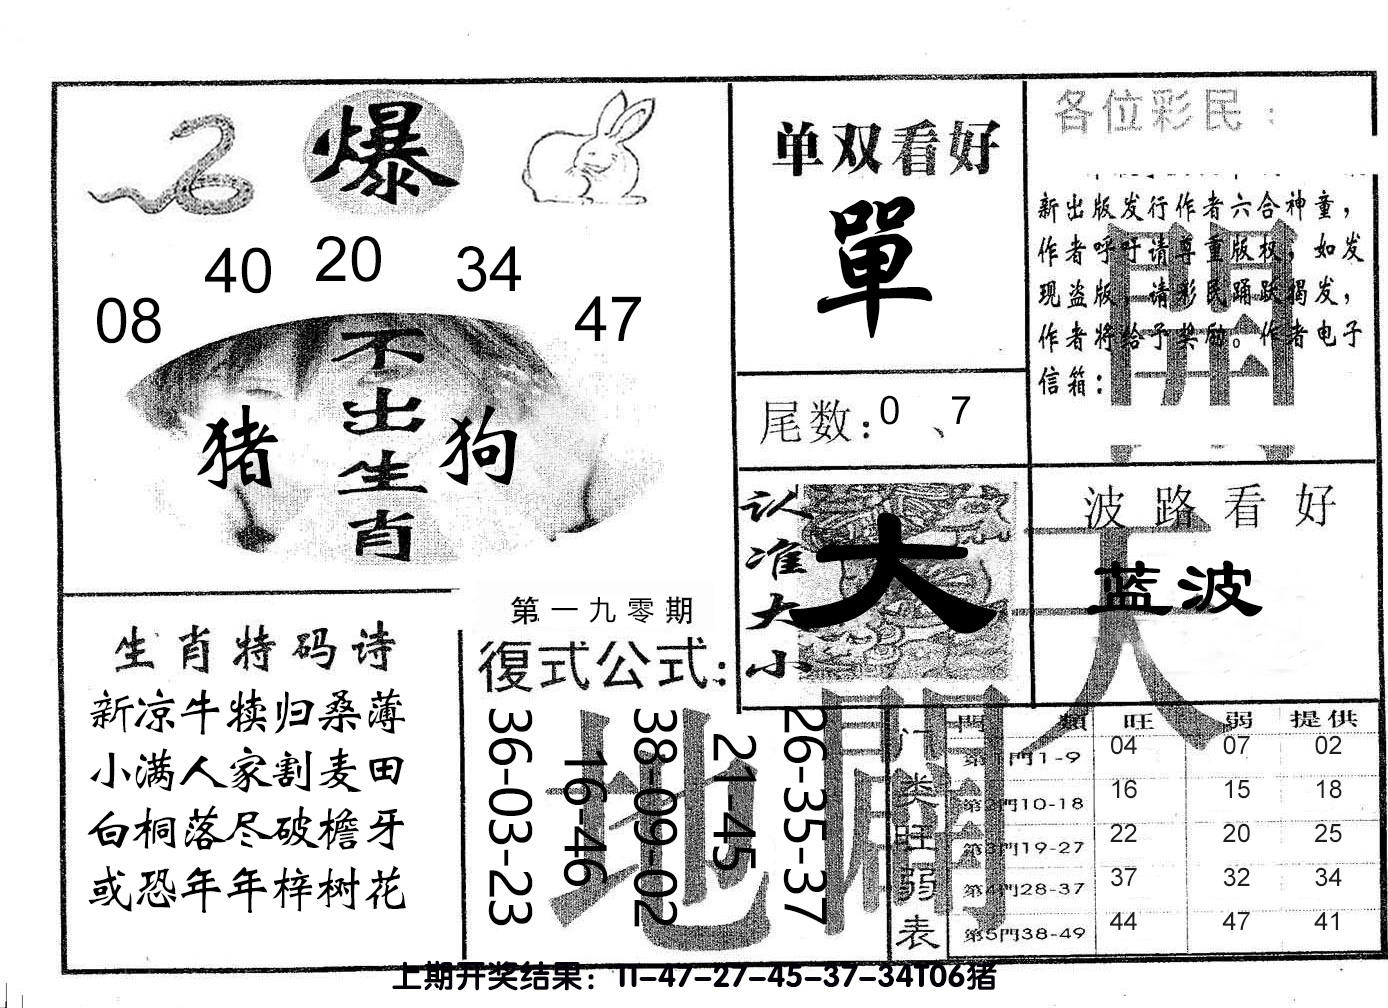 爆
40 20 34
08 47
不出生肖
猪 狗
单双看好
單
尾数:0、7
各位彩民:
新出版发行作者六合神童,
作者呼吁请尊重版权,如发
现盗版,请彩民踊跃揭发,
作者将给予奖励。作者电子
信箱:
認准大小
大
波路看好
蓝波
生肖特码诗
新凉牛犊归桑薄
小满人家割麦田
白桐落尽破檐牙
或恐年年梓树花
第一九零期
復式公式:
36-03-23
16-46
38-09-02
21-45
26-35-37
天
地
開
门类旺弱表
門類 旺 弱 提供
第1門1-9 04 07 02
第2門10-18 16 15 18
第3門19-27 22 20 25
第4門28-37 37 32 34
第5門38-49 44 47 41
上期开奖结果:11-47-27-45-37-34T06猪